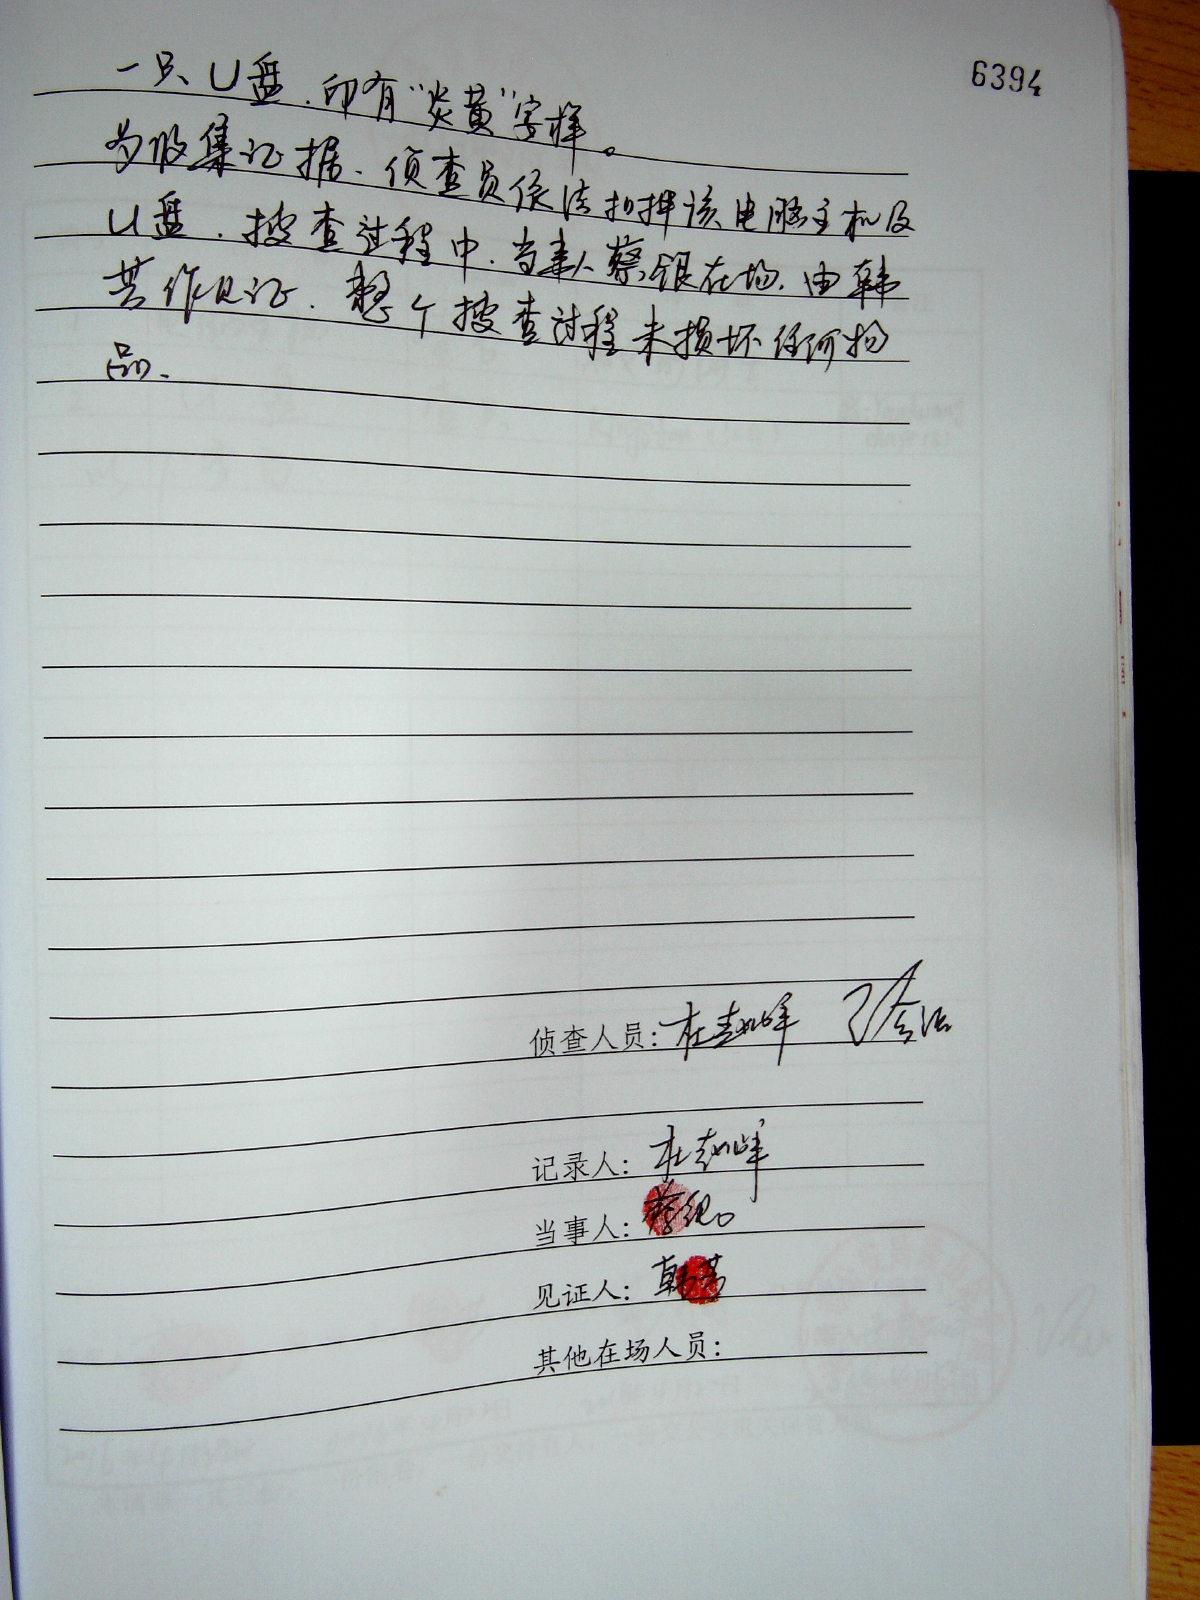 6394
一只、U盘、印有“炎黄”字样。
为收集证据、侦查员依法扣押该电脑主机及
U盘、搜查过程中、当事人蔡银在场、由韩
芸作见证、整个搜查过程未损坏任何物
品、
侦查人员：杜
记录人：杜
当事人：蔡银
见证人：韩芸
其他在场人员：